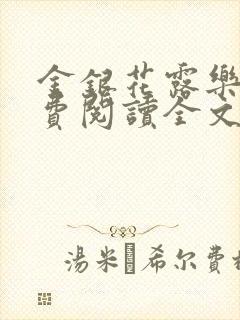 金銀花露樂
費閱讀全文
湯米 希尔費